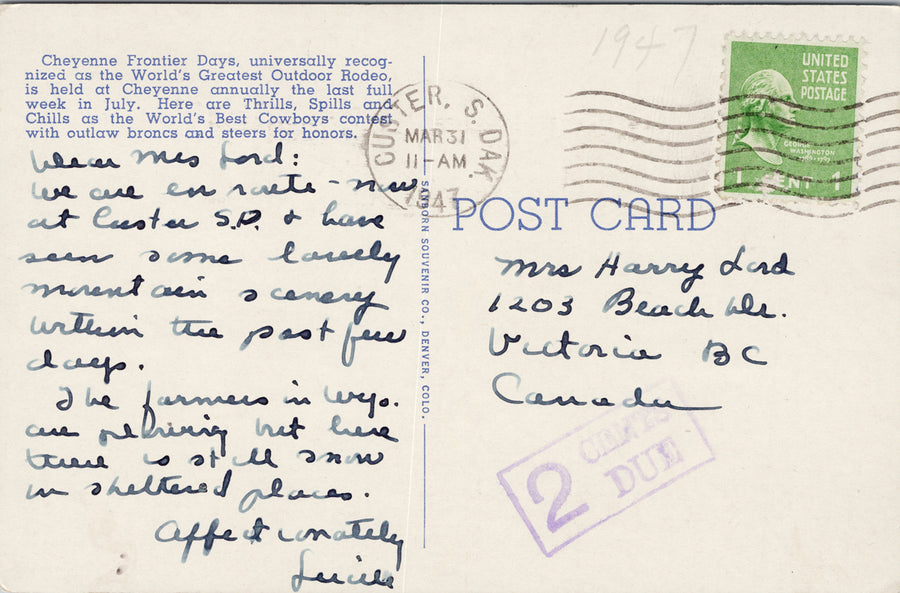 Cheyenne Frontier Days, universally recog-
nized as the World's Greatest Outdoor Rodeo,
is held at Cheyenne annually the last full
week in July. Here are Thrills, Spills and
Chills as the World's Best Cowboys contest
with outlaw broncs and steers for honors.
Dear Mrs Lord:
We are en route - now
at Custer S.D. & have
seen some lovely
mountain scenery
within the past few
days.
The farmers in Wyo.
are plowing but here
there is still snow
in sheltered places.
Affectionately
Lucile
SANBORN SOUVENIR CO., DENVER, COLO.
1947
CUSTER, S. DAK.
MAR 31
11-AM
1947
UNITED
STATES
POSTAGE
GEORGE
WASHINGTON
1789-1797
1 CENT 1
POST CARD
Mrs Harry Lord
1203 Beach Dr.
Victoria BC
Canada
2 CENTS
DUE